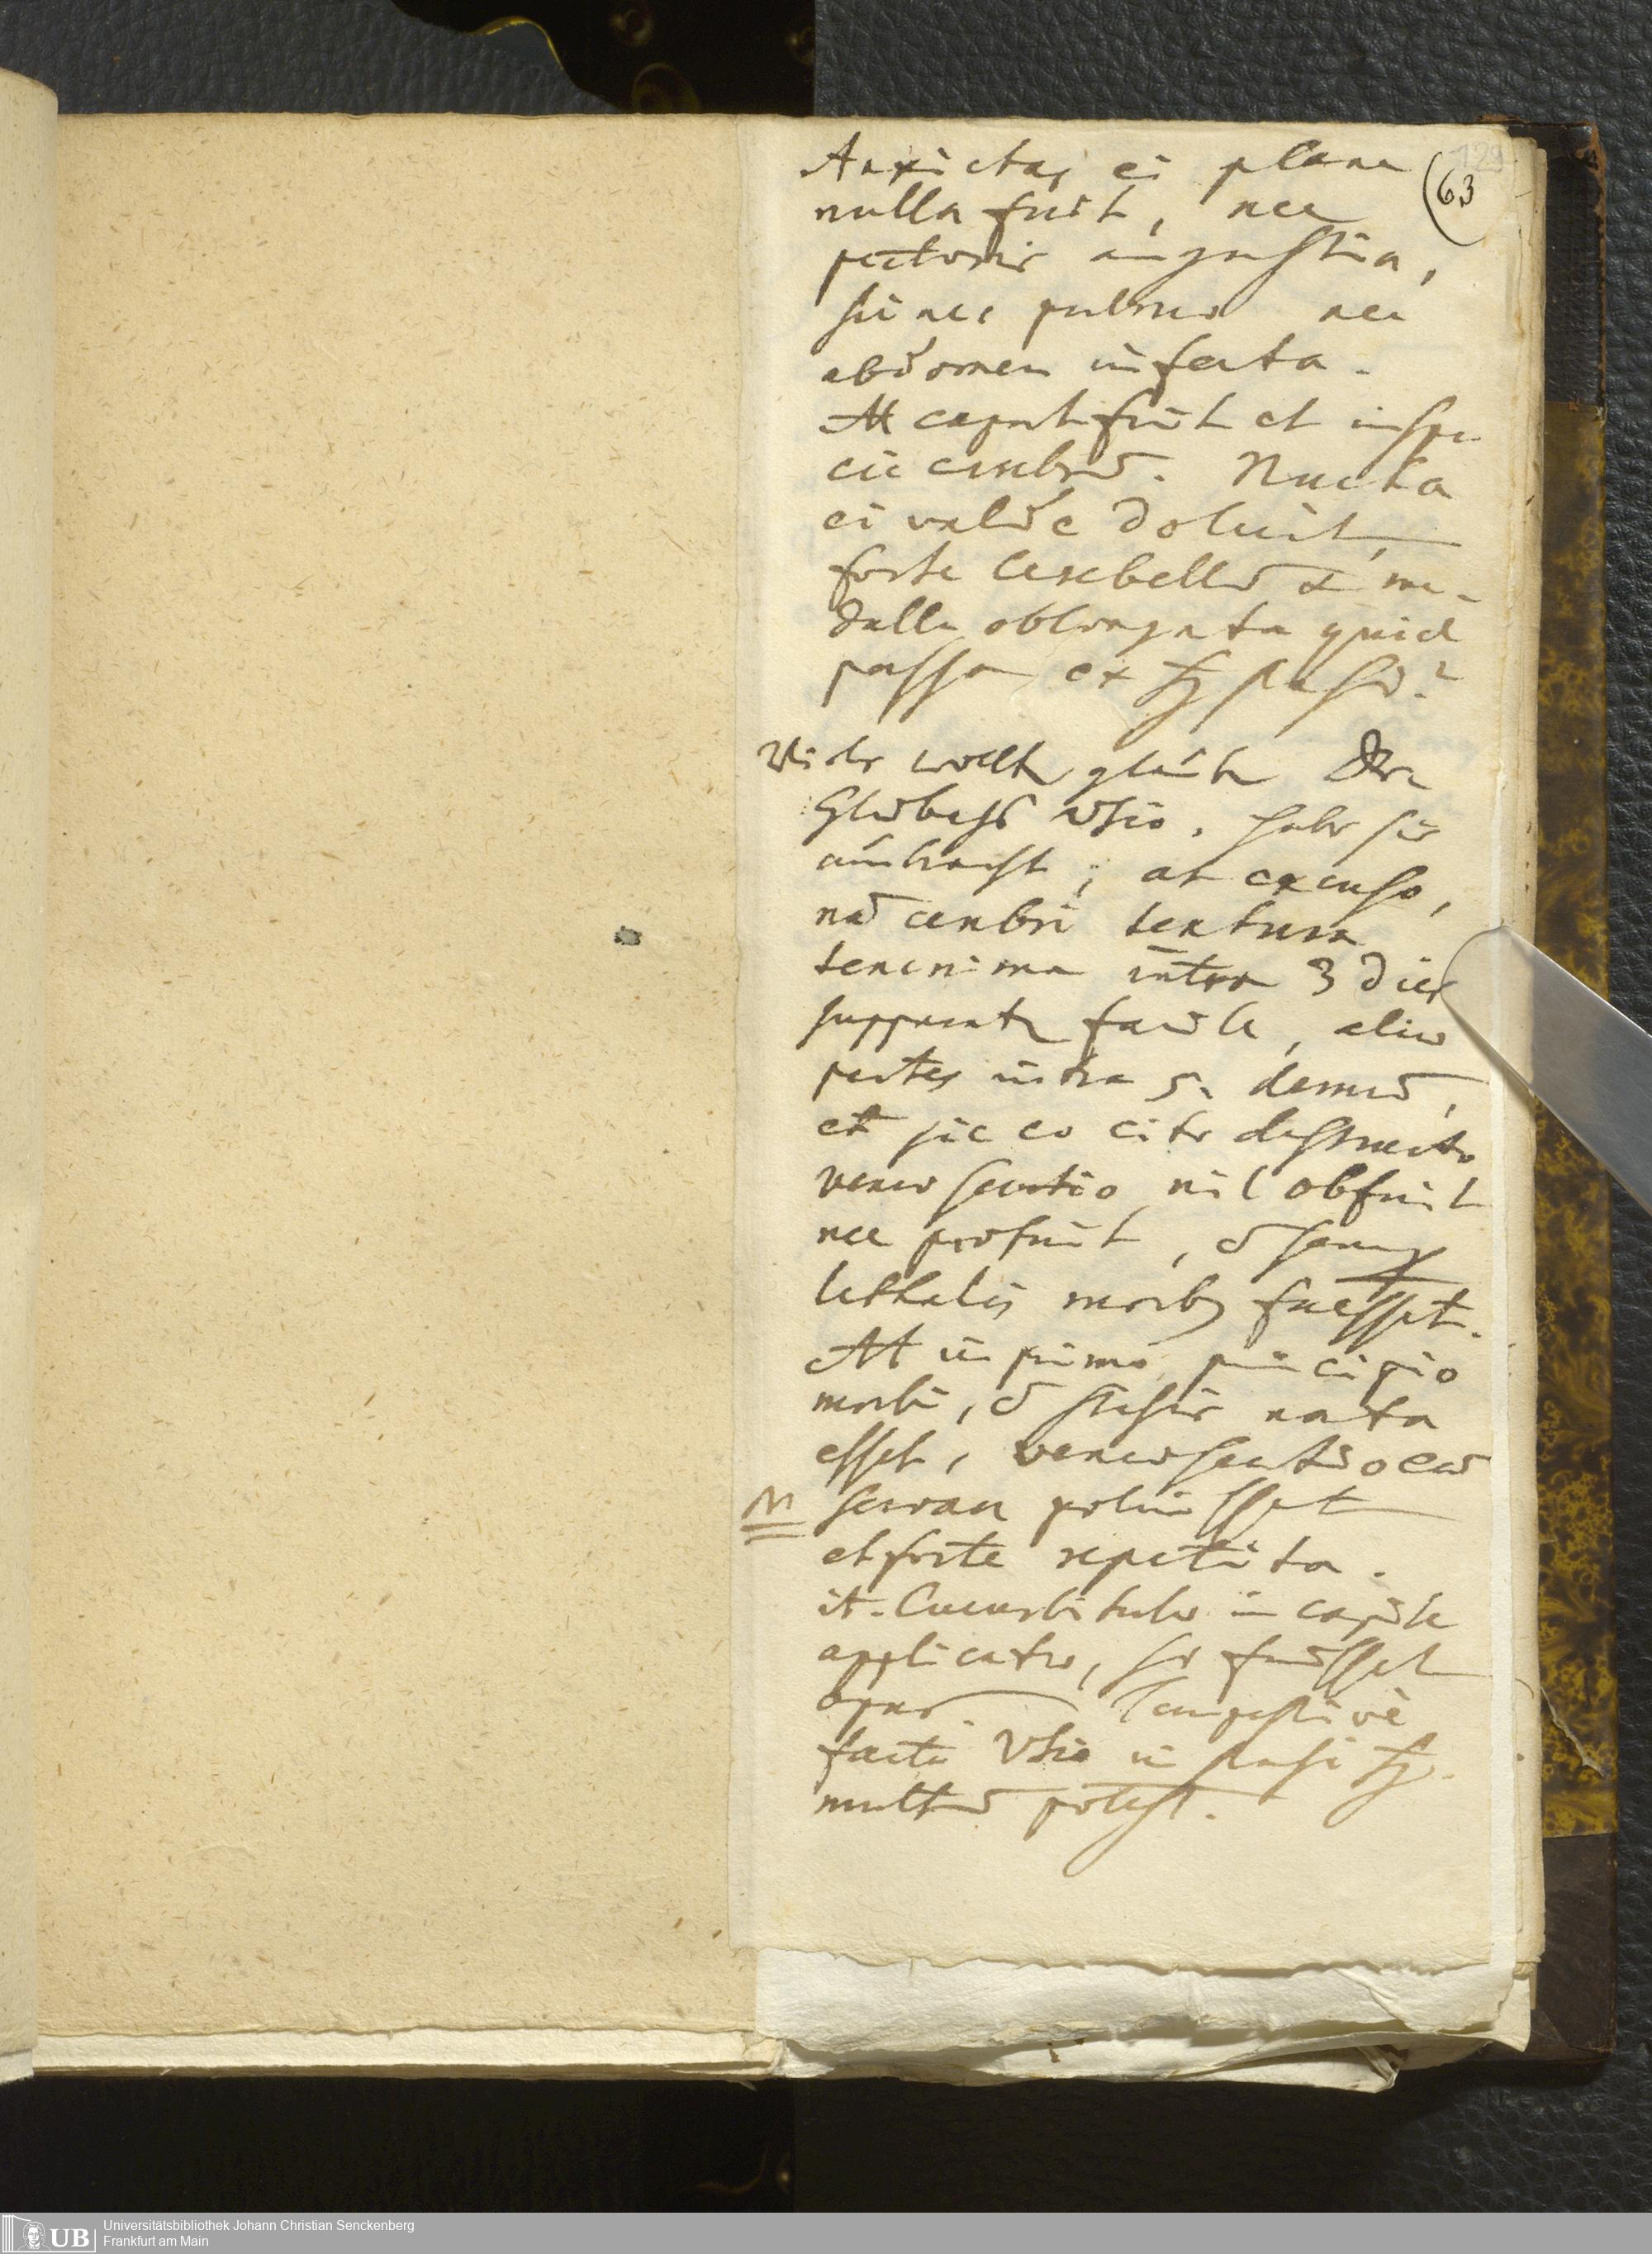 129
(63
Anxietas ei plane
nulla fuit, nec
pectoris angustia,
sic nec pulmo nec
abdomen infecta.
At caput fuit et in spe
cie cerebrũ. Nucha
ei valde doluit,
forte cerebellũ & me-
dulla oblongata quid
passa ex stasi?
Viele wollten glauben
VSio. habe sie
umbracht; at excuso,
nã cerebri textura
tenerrima intra 3 dies
suppuratur facile, aliæ
partes intra 5. demũ,
et sic eo cito destructo
venæsectio nil obfuit
nec profuit,
lethalis morbus fuisset.
At in primo principio
morbi, stasis nata
esset, venæsectio eam
servare potuisset
et forte repetita.
it. Cucurbitulæ in capite
applicatæ, si fuisset
opus. Tempestive
facta VSio in stasi
multũ potest.
UB
Universitätsbibliothek Johann Christian Senckenberg
Frankfurt am Main